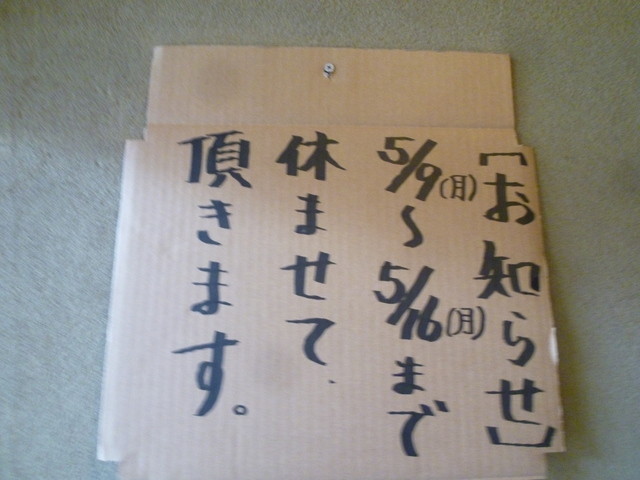 ［お知らせ］
5/9(月)〜5/16(月)まで
休ませて、
頂きます。